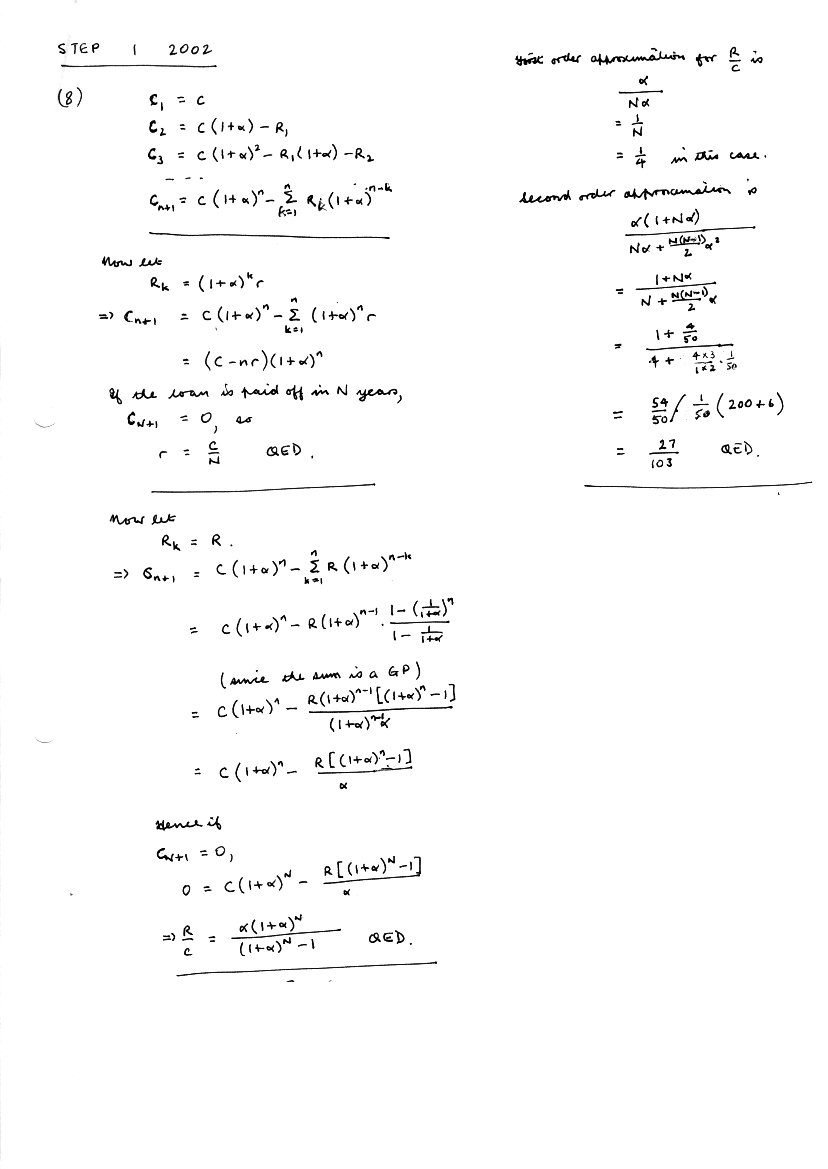 STEP 1 2002
(8) C₁ = C
C₂ = C(1+α) − R₁
C₃ = C(1+α)² − R₁(1+α) − R₂
- - - -
Cₙ₊₁ = C(1+α)ⁿ − Σₖ₌₁ⁿ Rₖ(1+α)ⁿ⁻ᵏ
Now let
Rₖ = (1+α)ᵏ r
⇒ Cₙ₊₁ = C(1+α)ⁿ − Σₖ₌₁ⁿ (1+α)ⁿ r
= (C − nr)(1+α)ⁿ
If the loan is paid off in N years,
C_{N+1} = 0, so
r = C/N QED.
Now let
Rₖ = R.
⇒ Cₙ₊₁ = C(1+α)ⁿ − Σₖ₌₁ⁿ R(1+α)ⁿ⁻ᵏ
= C(1+α)ⁿ − R(1+α)ⁿ⁻¹ · (1 − (1/(1+α))ⁿ)/(1 − 1/(1+α))
(since the sum is a GP)
= C(1+α)ⁿ − R(1+α)ⁿ⁻¹[(1+α)ⁿ − 1]/((1+α)ⁿ⁻¹α)
= C(1+α)ⁿ − R[(1+α)ⁿ − 1]/α
Hence if
C_{N+1} = 0,
0 = C(1+α)^N − R[(1+α)^N − 1]/α
⇒ R/C = α(1+α)^N/((1+α)^N − 1) QED.
First order approximation for R/C is
α/(Nα)
= 1/N
= 1/4 in this case.
Second order approximation is
α(1+Nα)/(Nα + (N(N−1)/2)α²)
= (1+Nα)/(N + (N(N−1)/2)α)
= (1 + 4/50)/(4 + (4×3)/(1×2) · 1/50)
= 54/50 / 1/50 (200+6)
= 27/103 QED.